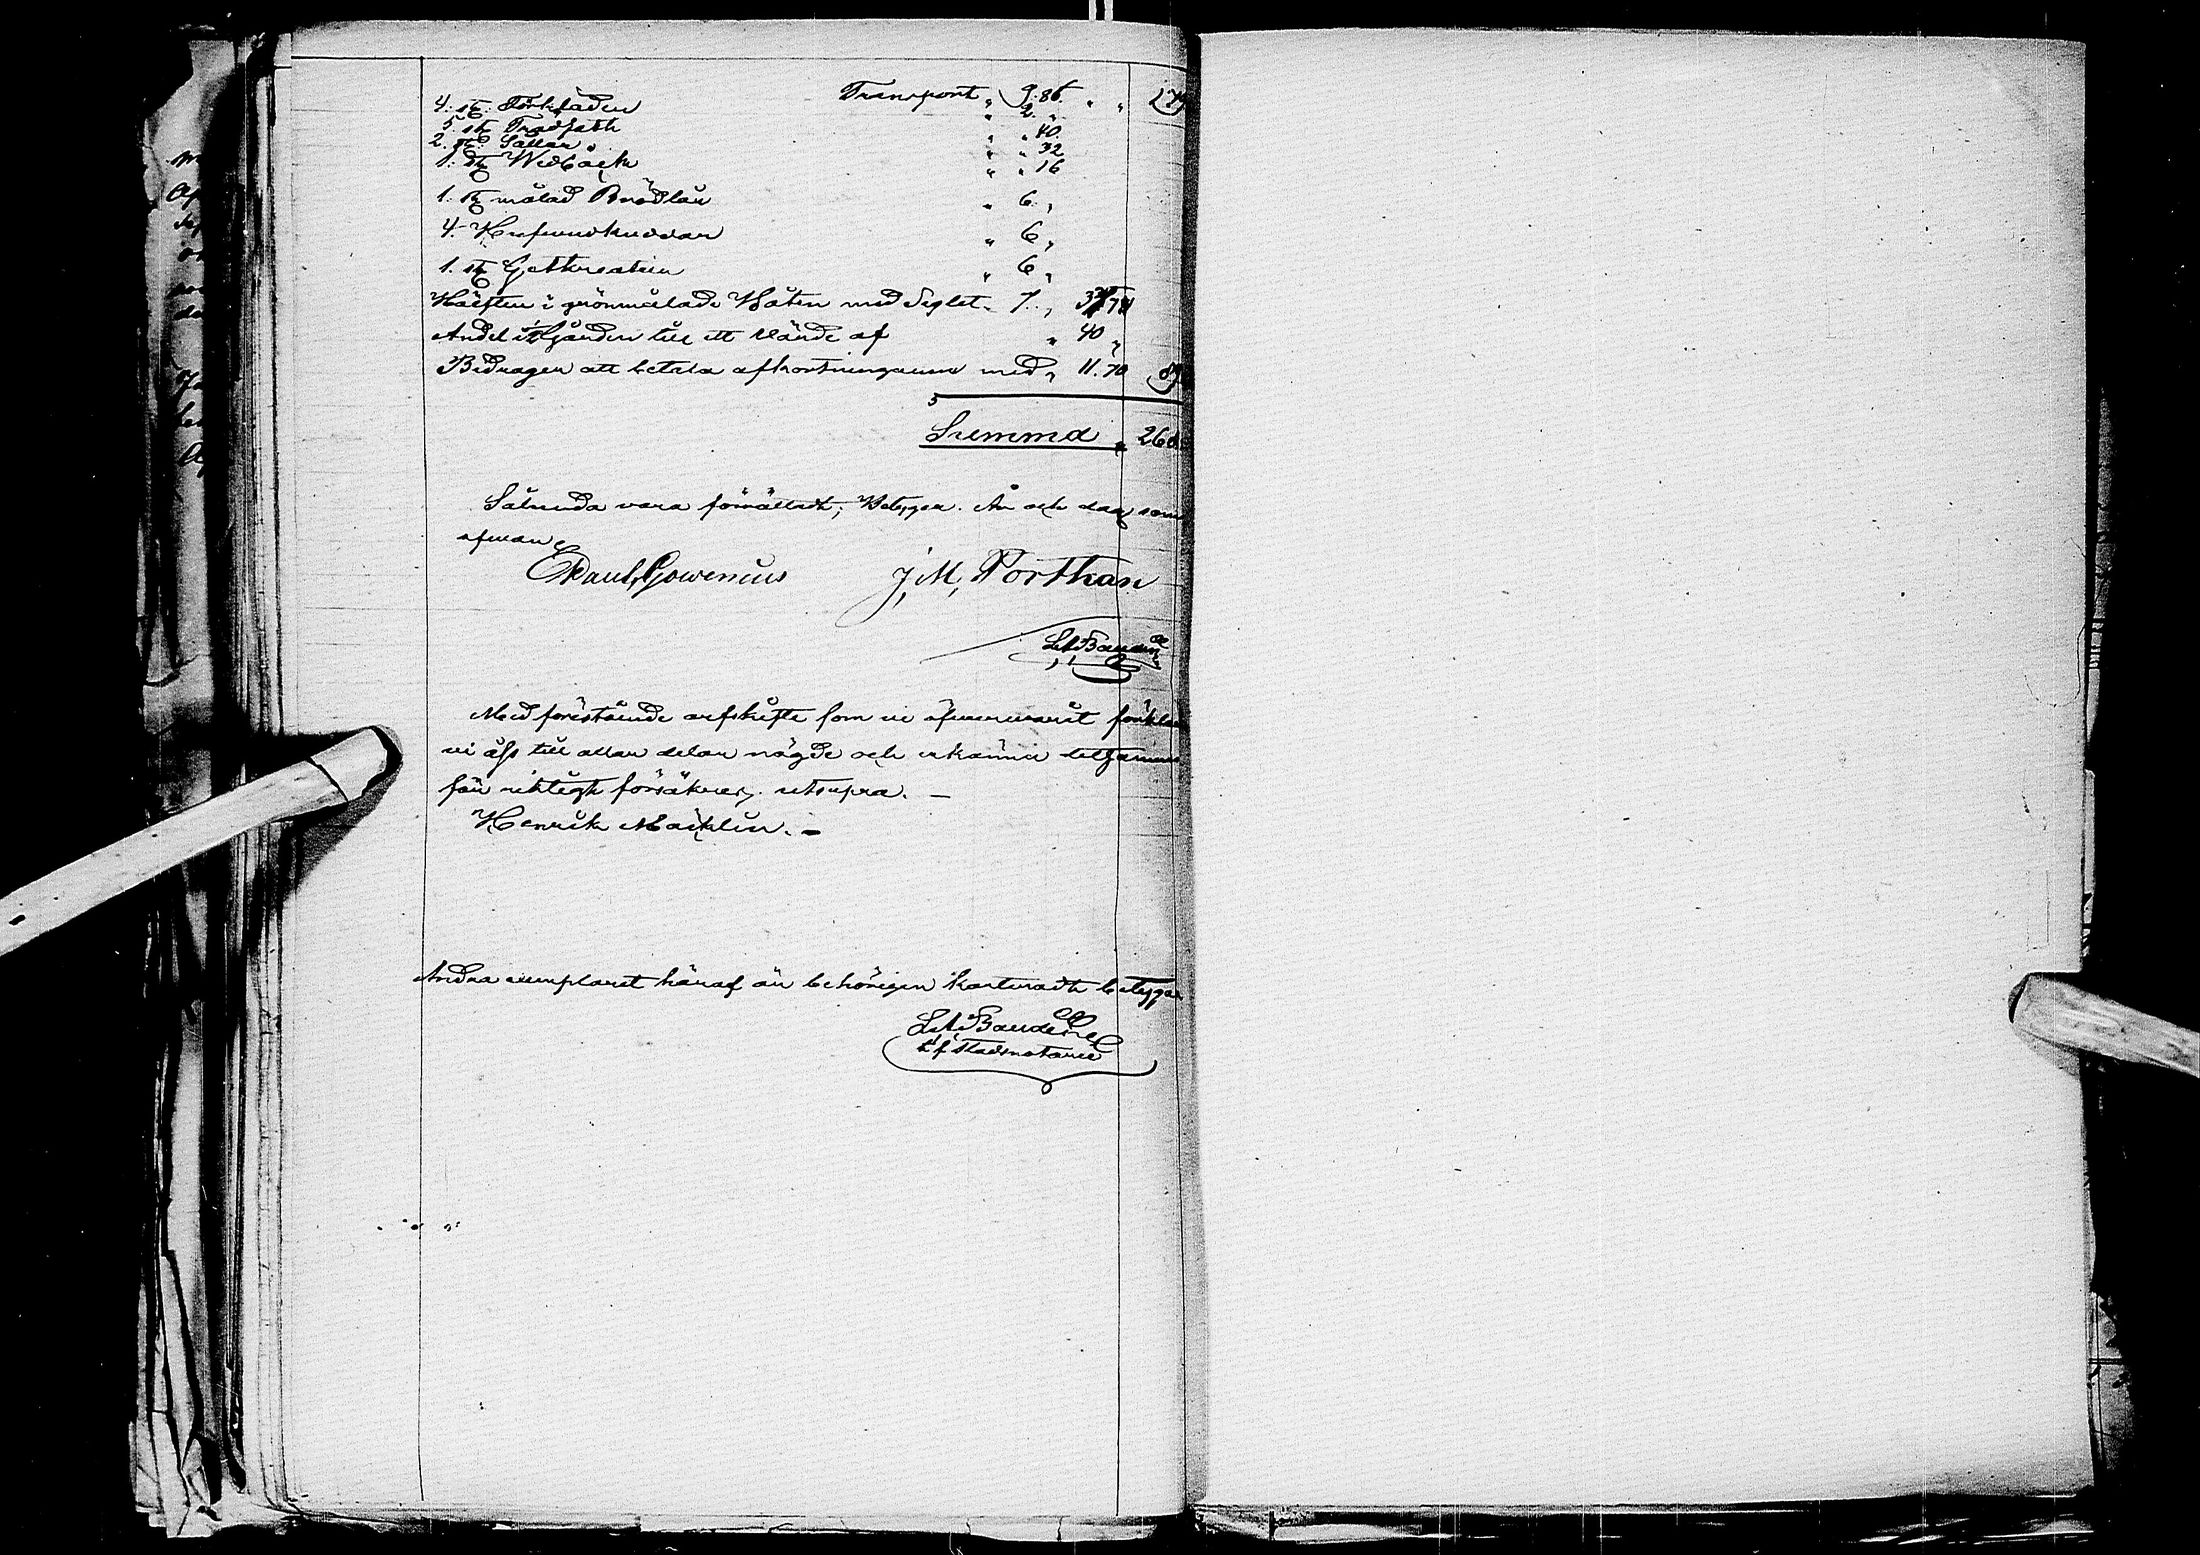 Transport " 9. 86. " " 179
4. st: Törkladen " 2. "
5. st Trädfath " " 40.
2. st: Sållar " " 32
1. st Wedbåck " " 16
1. st målad Brödlår " 6. "
4. Hufvudkuddar " 6 "
1. st " 6 "
Hälften i grönmålade Båten med Seglet " 7. " 74
Andel i Gården till ett Värde af " 40 "
Bidrager att betala afkortningarne med " 11. 70 89
Summa " 268
Sålunda vara förrättadt; Betygar. År och dag som
ofvan
Paul, Gowenius J, M, Porthan
Med förestående arfskifte som vi öfvervarit förklara
vi åss till allar delar nögde och erkänna detsamma
för riktigt försäkrar, utsupra. —
Henrik Macklin. —
Andra exemplaret häraf är behörigen karteradt betygar
t f stadsnotarie